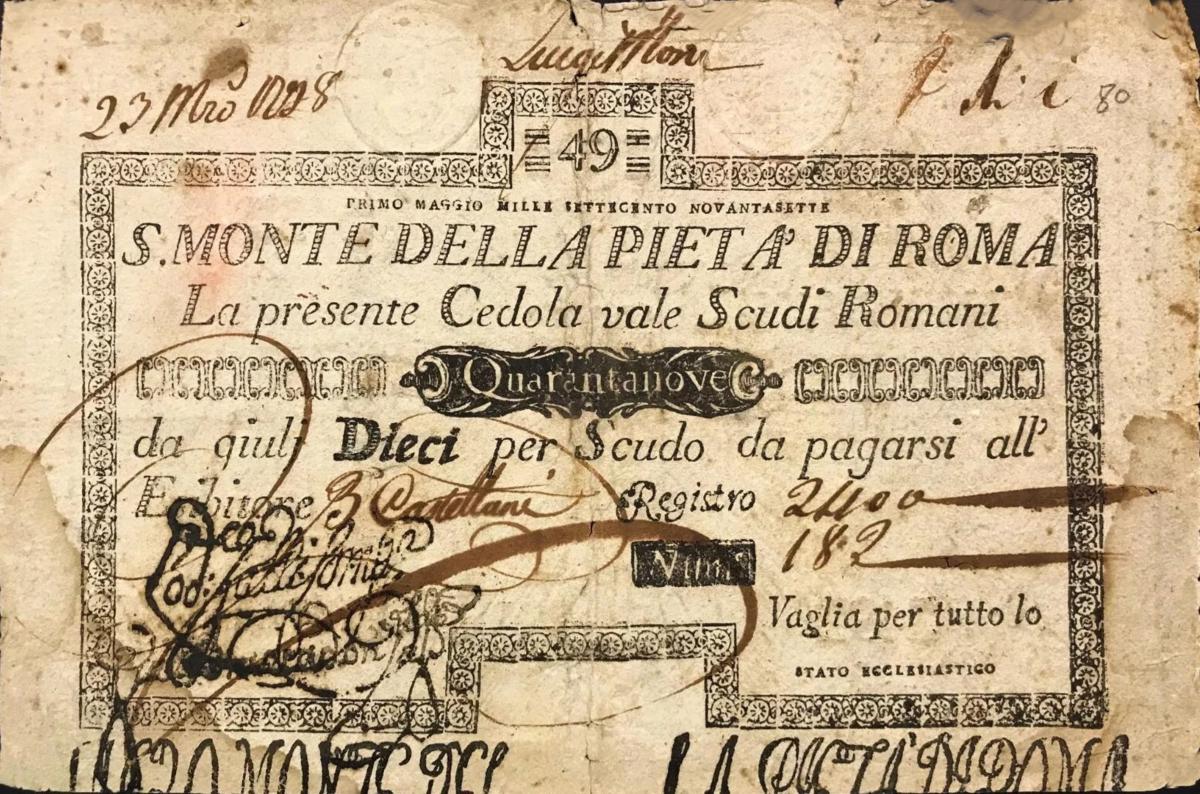 Luigi
23 Mro 80
49
PRIMO MAGGIO MILLE SETTECENTO NOVANTASETTE
S. MONTE DELLA PIETA' DI ROMA
La presente Cedola vale Scudi Romani
Quarantanove
da giulj Dieci per Scudo da pagarsi all'
Esibitore B Castellani Registro 2400
Num. 182
Vaglia per tutto lo
STATO ECCLESIASTICO